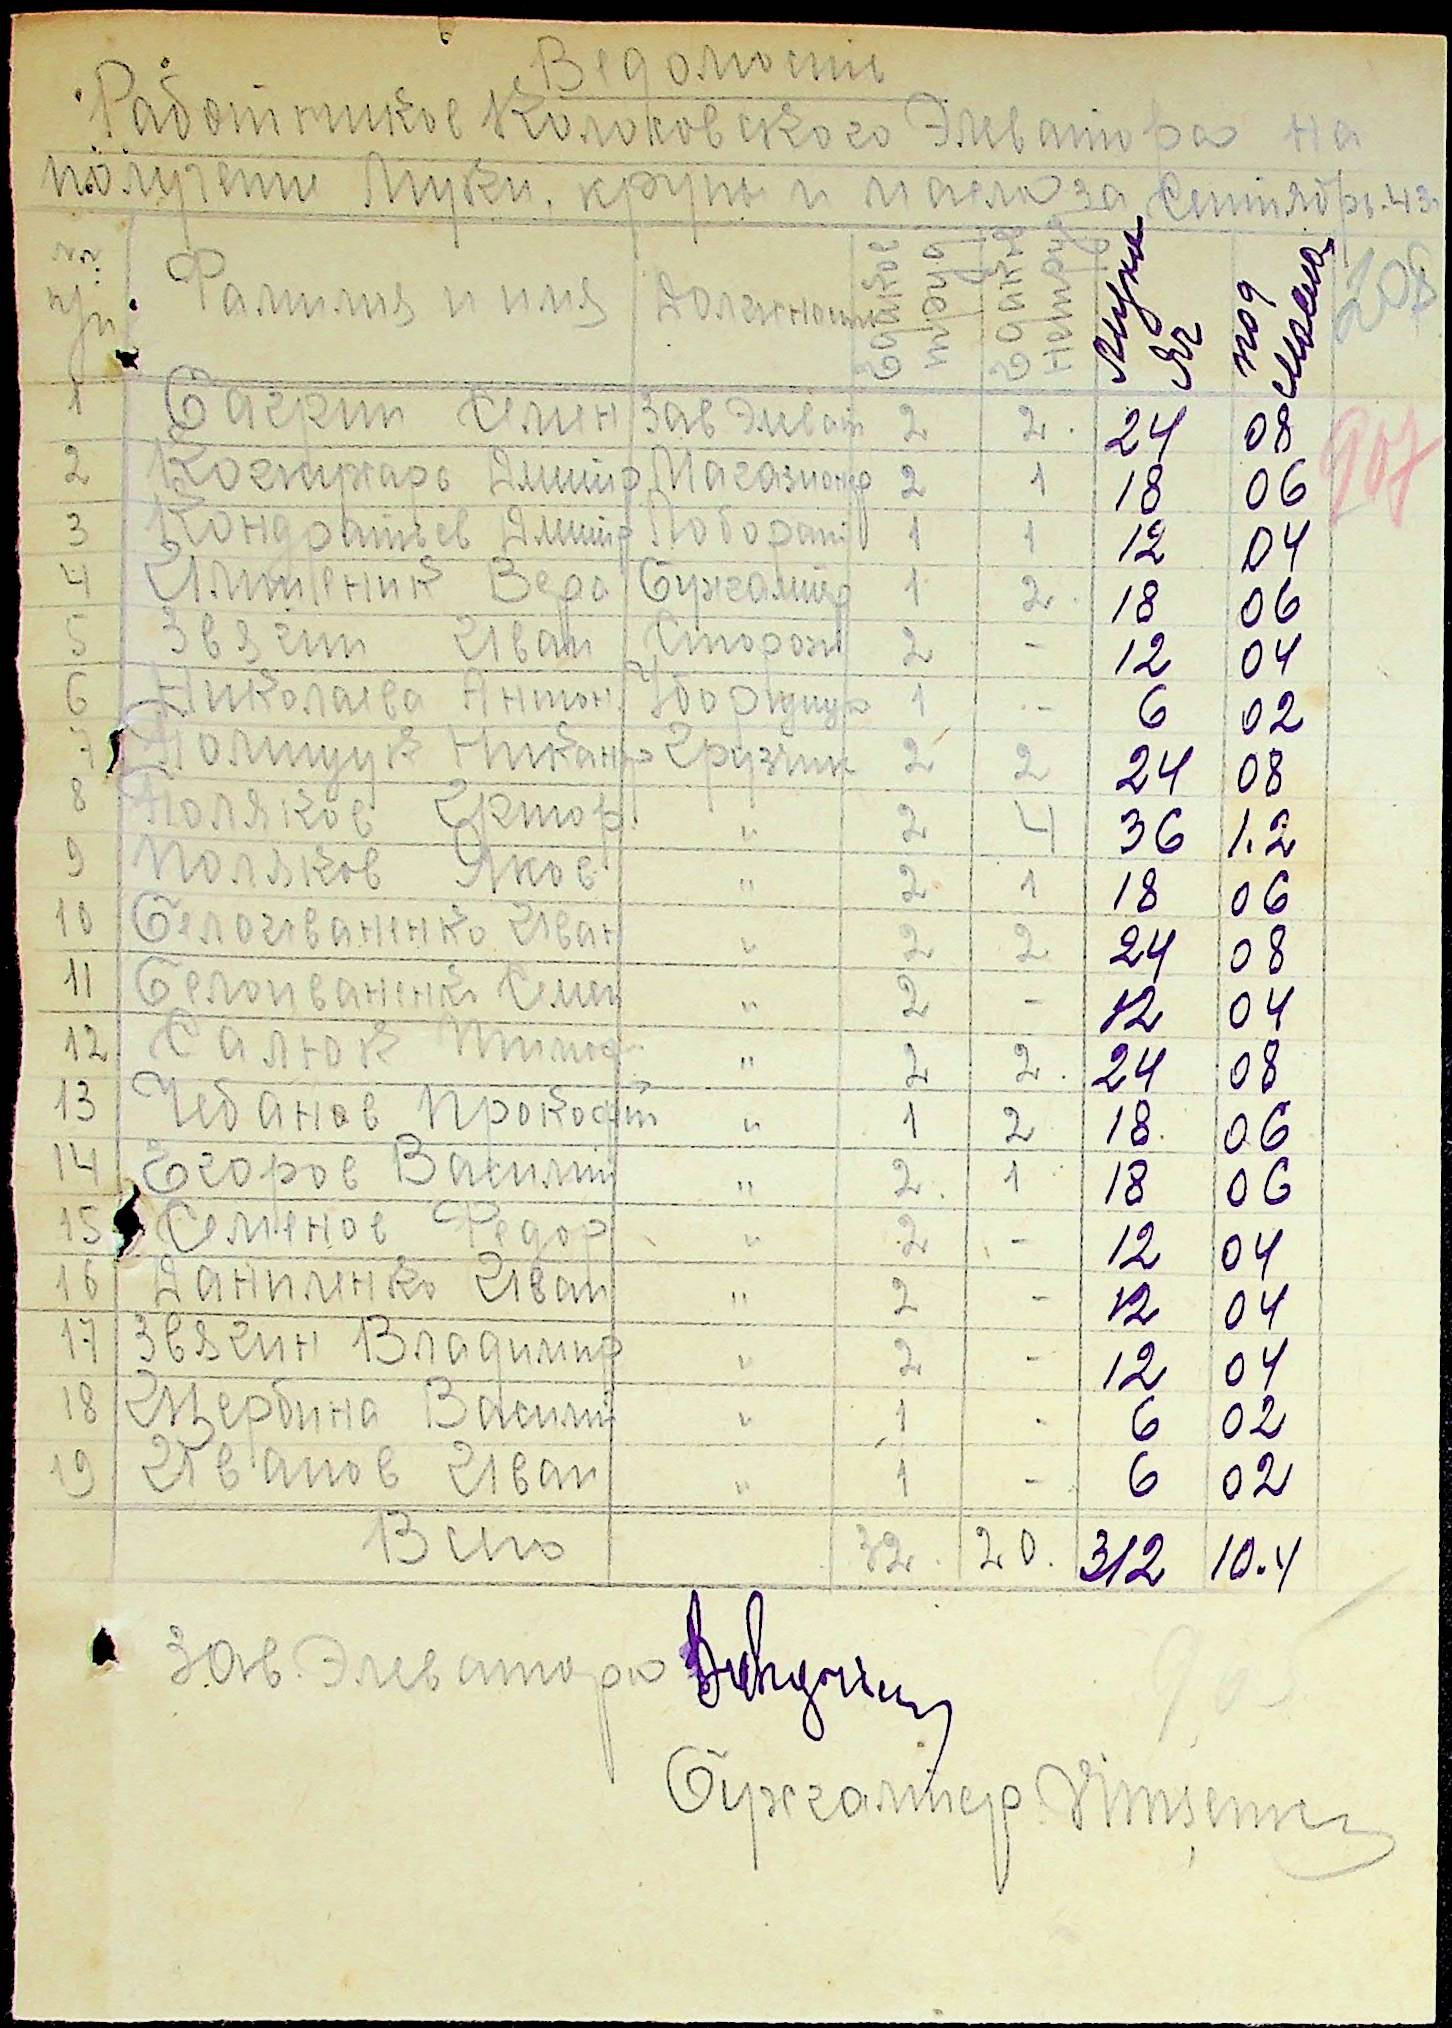 Ведомость
Работников Колосовского Элеватора на
получение муки, крупы и масла за Сентябрь 43
№№ п/п Фамилия и имя Должность Едоков труд Едоков нетруд мука кг под масла 208
1 Багрин Семен Зав Элеват 2 2 24 08
207
2 Кочмарь Дмитр Магазионер 2 1 18 06
3 Кондратьев Дмитр Лоборант 1 1 12 04
4 Вера Бухгалтер 1 2 18 06
5 Звягин Иван Сторож 2 - 12 04
6 Николаева Антон Уборщица 1 - 6 02
7 Полищук Никанр Грузчик 2 2 24 08
8 Поляков " 2 4 36 1.2
9 Поляков Яков " 2 1 18 06
10 Белоиваненко Иван " 2 2 24 08
11 Белоиваненко Семен " 2 - 12 04
12 Салюк Тимоф " 2 2 24 08
13 Чебанов Прокофий " 1 2 18 06
14 Егоров Василий " 2 1 18 06
15 Семенов Федор " 2 - 12 04
16 Даниленко Иван " 2 - 12 04
17 Звягин Владимир " 2 - 12 04
18 Щербина Василий " 1 - 6 02
19 Иванов Иван " 1 - 6 02
Всего 32 20 312 10.4
Зав. Элеватора
Бухгалтер